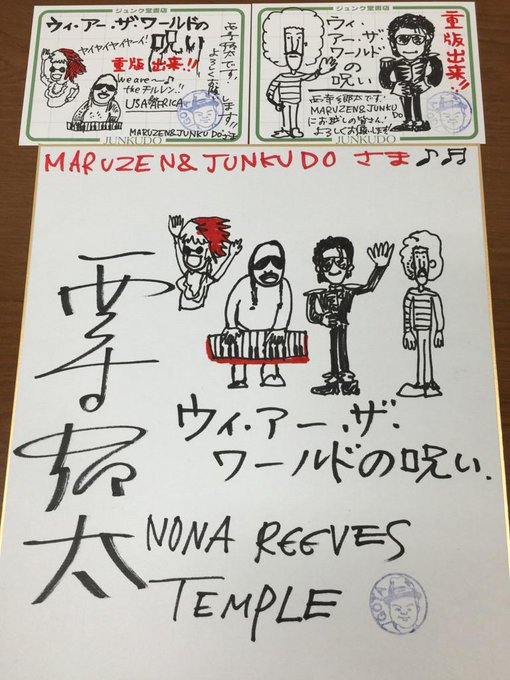 ウィ・アー・ザ・ワールドの
呪い
ヤイヤイヤイヤーイ!
重版出来!!
we are〜♪
theチルレン!!
西寺郷太です。
よろしくお願いします!!
MARUZEN&JUNKUDOさま
JUNKUDO
ジュンク堂書店
ウィ・
アー・ザ・
ワールド
の呪い
重版出来!!
西寺郷太です。
MARUZEN&JUNKUDO
にお越しの皆さん!
よろしくお願いします
JUNKUDO
MARUZEN&JUNKUDO さま♪♬
西寺郷太
ウィ・アー・ザ・
ワールドの呪い.
NONA REEVES
TEMPLE
GOTA